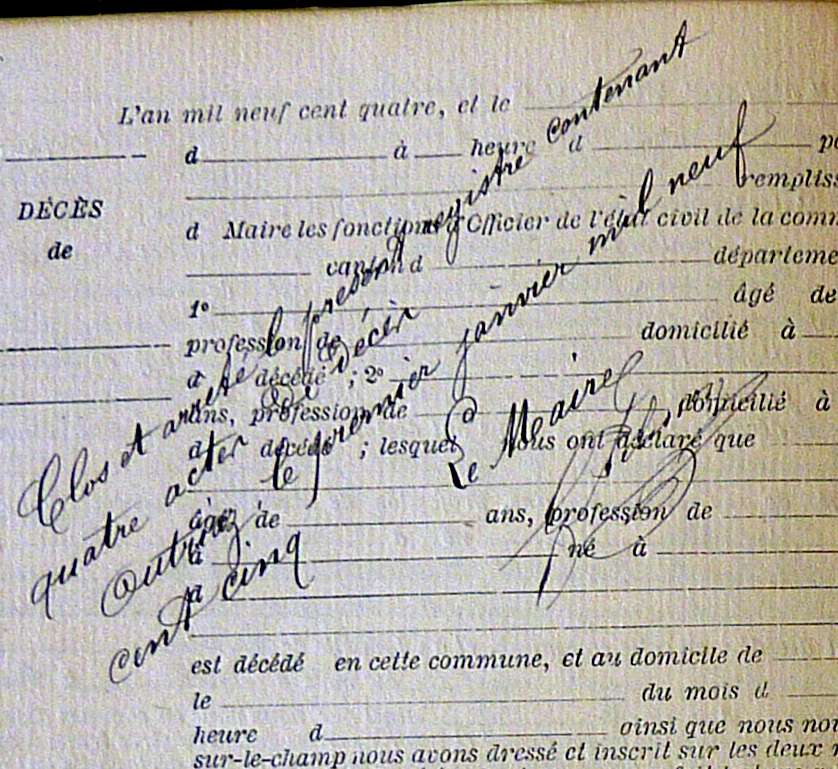 L'an mil neuf cent quatre, et le
d à heure d
remplis
DÉCÈS
de
d Maire les fonctions d'Officier de l'état civil de la com
canton d départeme
1° âgé de
profession de domicilié à
d décédé ; 2°
ans, profession de domicilié à
d décédé ; lesquel nous ont déclaré que
âgé de ans, profession de
à né à
est décédé en cette commune, et au domicile de
le du mois d
heure d ainsi que nous
sur-le-champ nous avons dressé et inscrit sur les deux
Clos et arrêté le présent registre contenant
quatre actes de décès
le premier janvier mil neuf
cent cinq
Le Maire